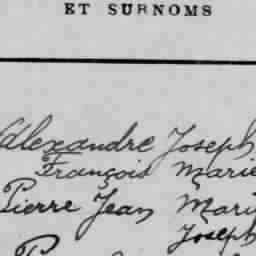 ET SURNOMS
Alexandre Joseph
François Marie
Pierre Jean Mari
Joseph